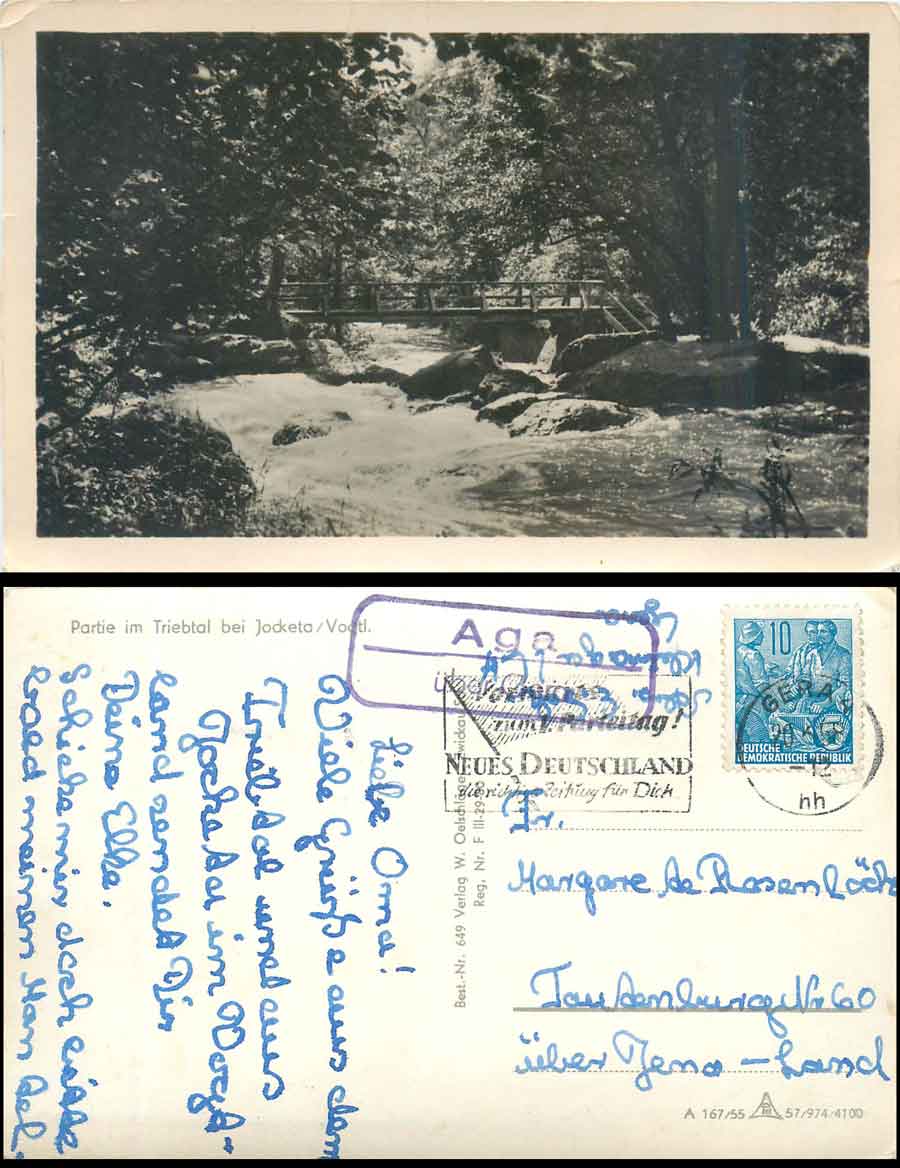 Partie im Triebtal bei Jocketa/Vogtl.
Aga
Gera
Kleinaga
Vorwärts
zum V. Parteitag!
NEUES DEUTSCHLAND
die richtige Zeitung für Dich
10
DEUTSCHE
DEMOKRATISCHE REPUBLIK
GERA
-12
hh
Liebe Oma!
Viele Grüße aus dem
Triebtal und aus
Jocketa im Vogt-
land sendet Dir
Deine Elke.
Schicke mir doch bitte
und meinen Mantel.
Best.-Nr. 649 Verlag W. Oelschläger, Zwickau
Reg. Nr. F III-29
Fr.
Margarete Rosenlöch
Tautenburg Nr 60
über Jena - Land
A 167/55 57/974 4100